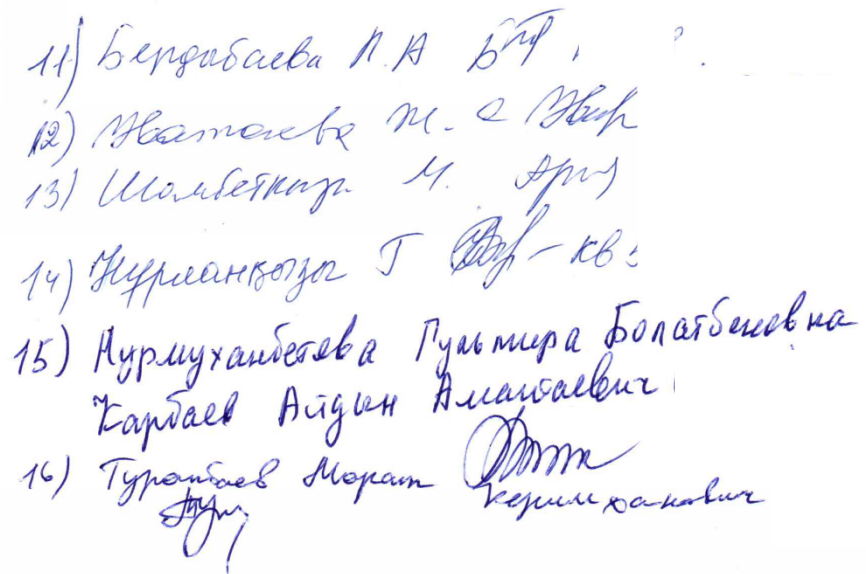 11) Бердибаева П. А
12) Уватаева Ж. С
13) Шамбетқызы М.
14) Нұрланқызы Г - кв
15) Нурмуханбетова Гульмира Болатбековна
Карбаев Айдын Амантаевич
16) Турсынбаев Марат
Керимханович